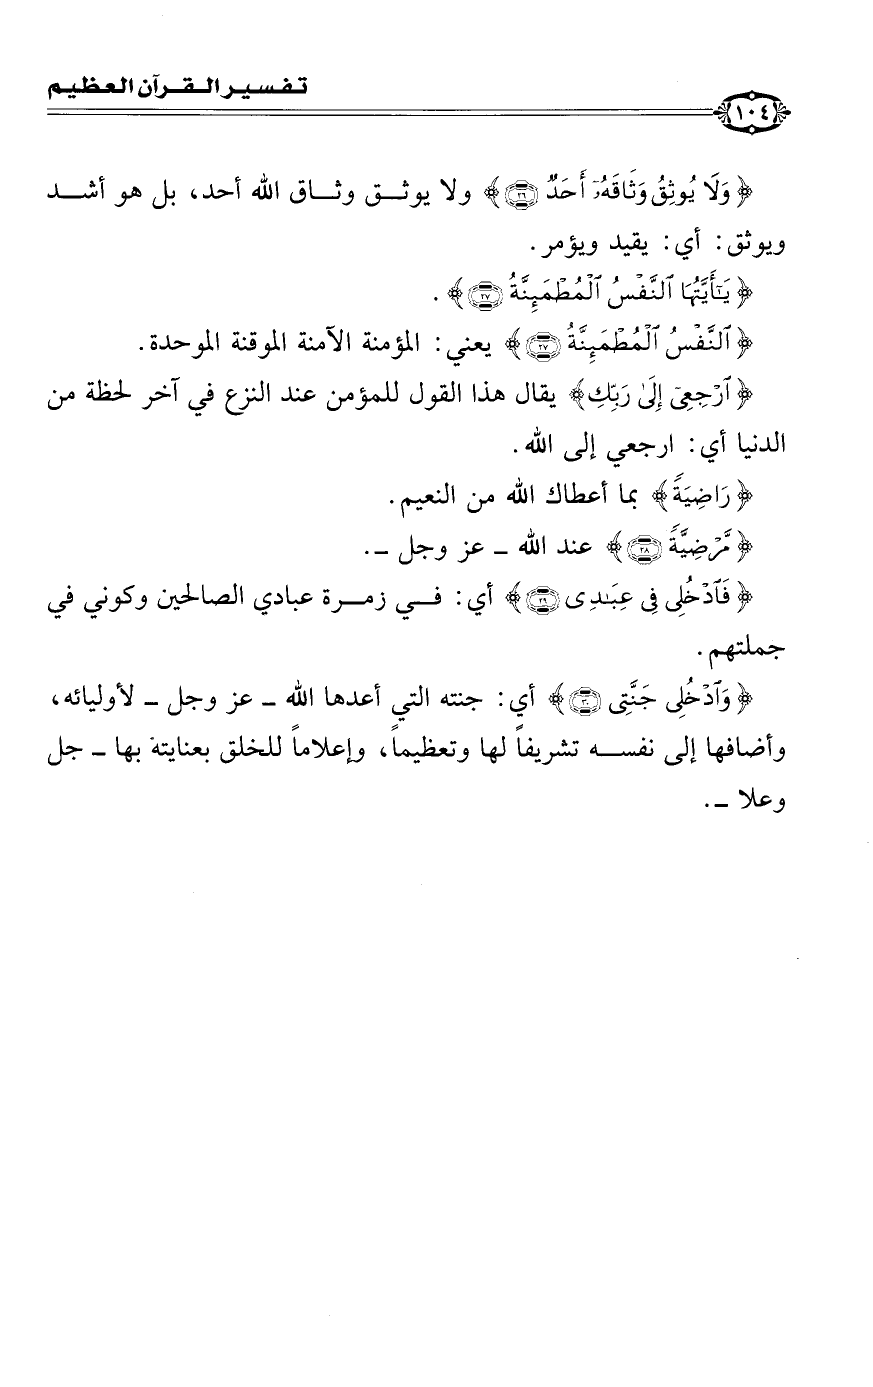 تفسير القرآن العظيم
١٠٤
﴿وَلَا يُوثِقُ وَثَاقَهُۥٓ أَحَدٌ ٢٦﴾ ولا يوثق وثاق الله أحد، بل هو أشد
ويوثق: أي: يقيد ويؤمر.
﴿يَٰٓأَيَّتُهَا ٱلنَّفْسُ ٱلْمُطْمَئِنَّةُ ٢٧﴾.
﴿ٱلنَّفْسُ ٱلْمُطْمَئِنَّةُ ٢٧﴾ يعني: المؤمنة الآمنة الموقنة الموحدة.
﴿ٱرْجِعِىٓ إِلَىٰ رَبِّكِ﴾ يقال هذا القول للمؤمن عند النزع في آخر لحظة من
الدنيا أي: ارجعي إلى الله.
﴿رَاضِيَةً﴾ بما أعطاك الله من النعيم.
﴿مَّرْضِيَّةً ٢٨﴾ عند الله ـ عز وجل ـ.
﴿فَٱدْخُلِى فِى عِبَٰدِى ٢٩﴾ أي: في زمرة عبادي الصالحين وكوني في
جملتهم.
﴿وَٱدْخُلِى جَنَّتِى ٣٠﴾ أي: جنته التي أعدها الله ـ عز وجل ـ لأوليائه،
وأضافها إلى نفسه تشريفاً لها وتعظيماً، وإعلاماً للخلق بعنايته بها ـ جل
وعلا ـ.